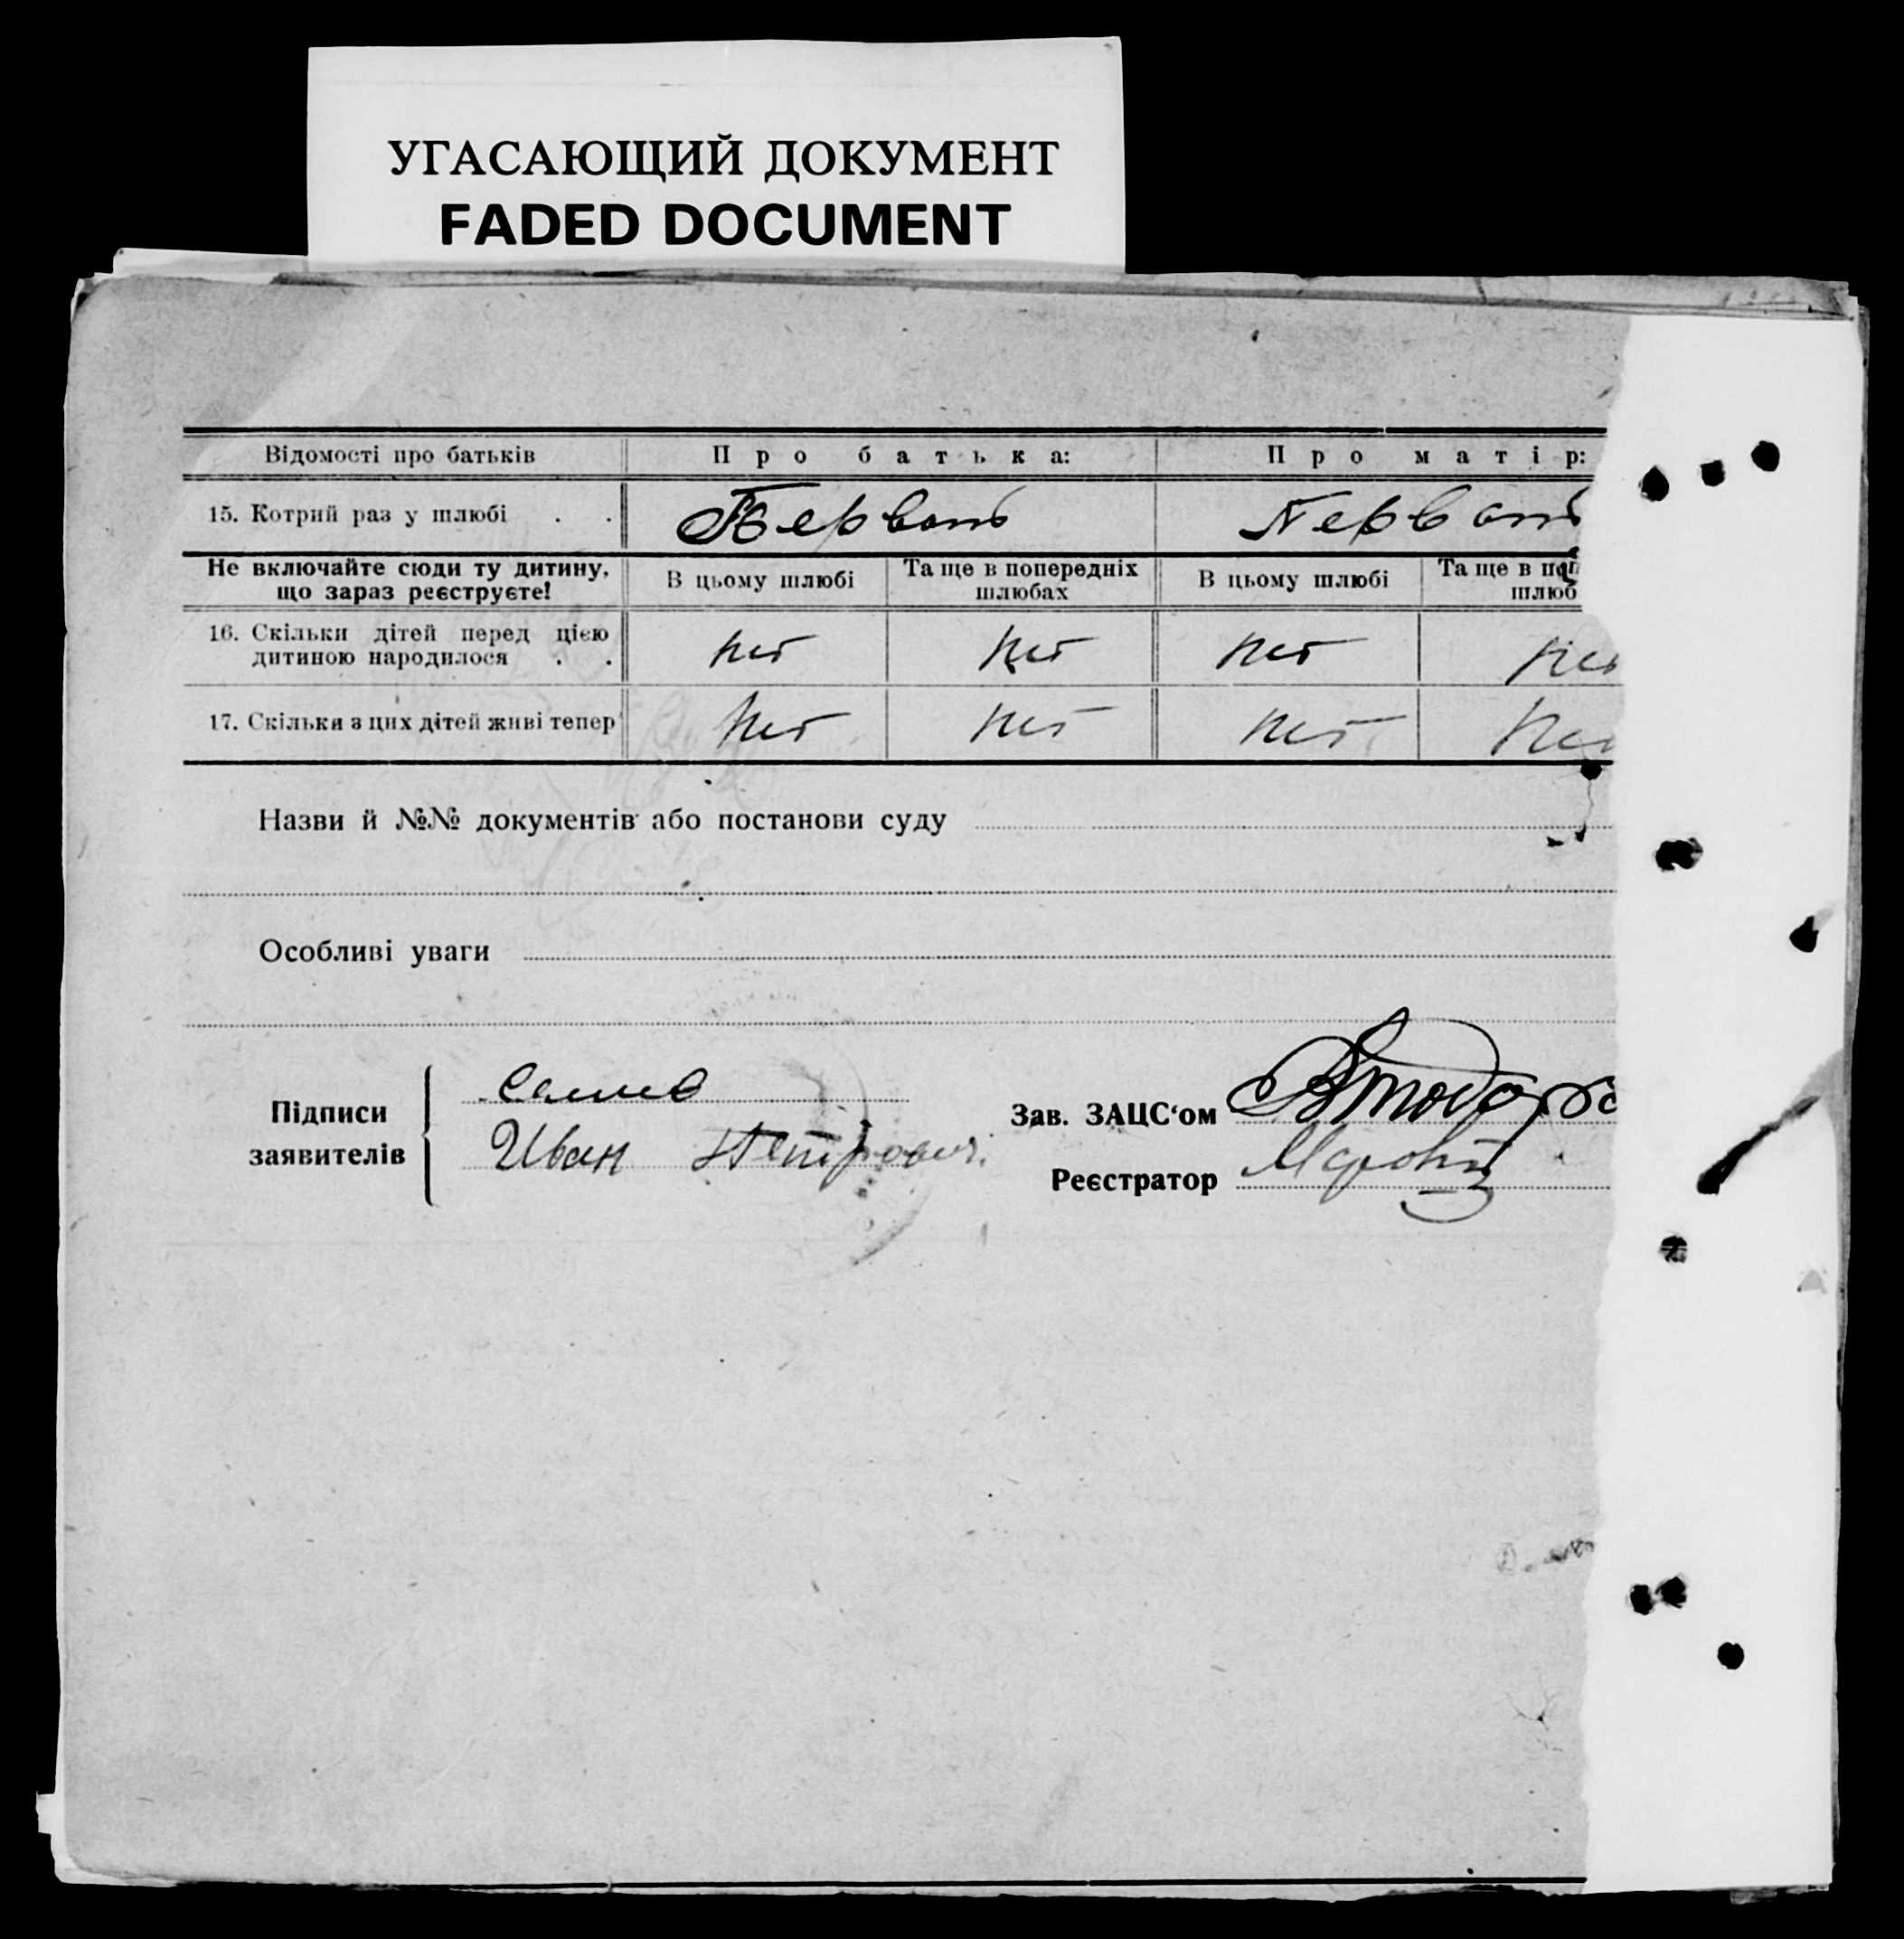 УГАСАЮЩИЙ ДОКУМЕНТ
FADED DOCUMENT
Відомості про батьків Про батька: Про матір:
15. Котрий раз у шлюбі . .
Не включайте сюди ту дитину, що зараз реєструєте! В цьому шлюбі Та ще в попередніх шлюбах В цьому шлюбі Та ще в
16. Скільки дітей перед цією дитиною народилося . . Нет Нет Нет Нет
17. Скільки з цих дітей живі тепер Нет Нет Нет Нет
Назви й №№ документів або постанови суду
Особливі уваги
Підписи заявителів
Иван Петрович
Зав. ЗАЦС‘ом
Реєстратор